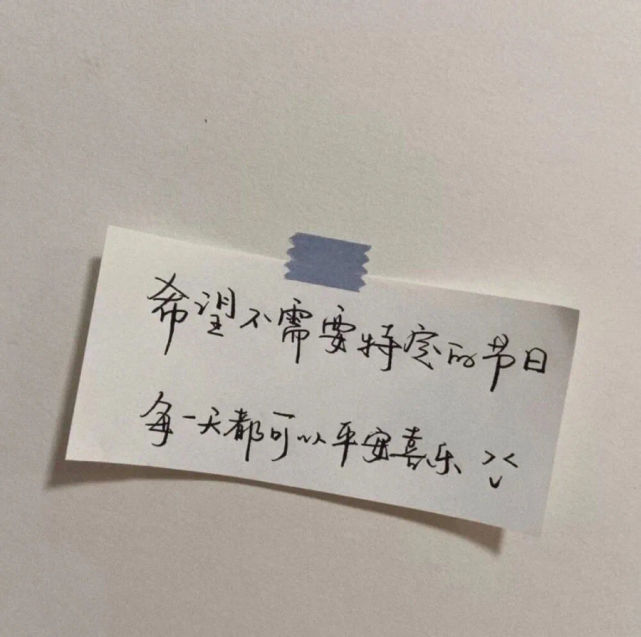 希望不需要特定的节日
每一天都可以平安喜乐